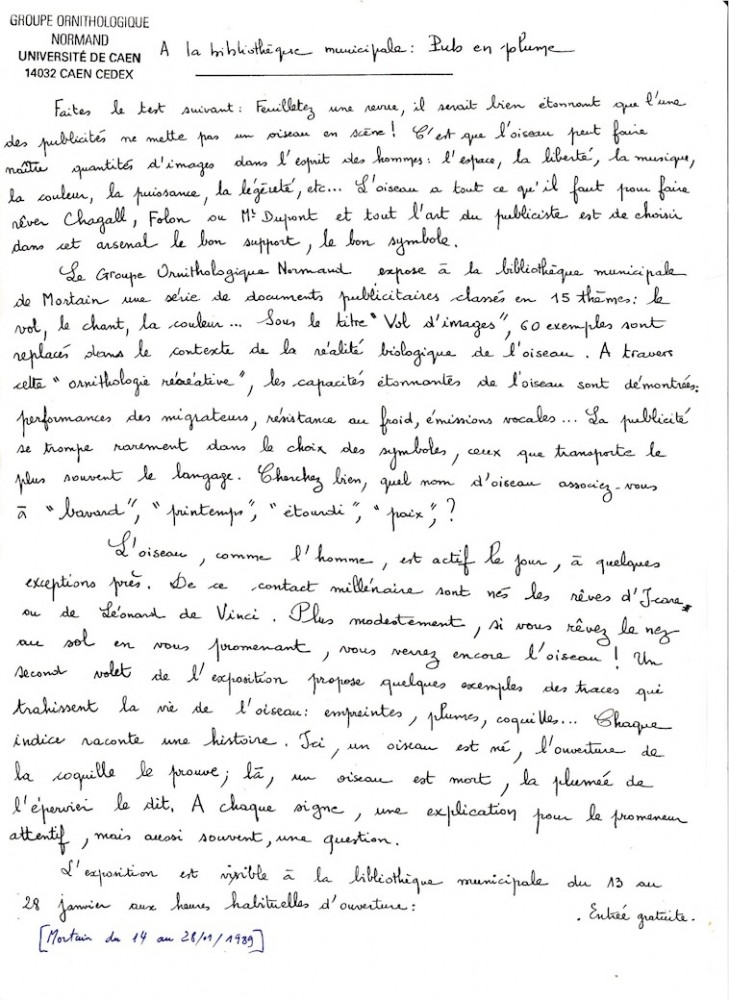 GROUPE ORNITHOLOGIQUE
NORMAND
UNIVERSITÉ DE CAEN
14032 CAEN CEDEX
A la bibliothèque municipale : Pub en plume
Faites le test suivant : Feuilletez une revue, il serait bien étonnant que l'une
des publicités ne mette pas un oiseau en scène ! C'est que l'oiseau peut faire
naître quantités d'images dans l'esprit des hommes : l'espace, la liberté, la musique,
la couleur, la puissance, la légèreté, etc... L'oiseau a tout ce qu'il faut pour faire
rêver Chagall, Folon ou Mr Dupont et tout l'art du publiciste est de choisir
dans cet arsenal le bon support, le bon symbole.
Le Groupe Ornithologique Normand expose à la bibliothèque municipale
de Mortain une série de documents publicitaires classés en 15 thèmes : le
vol, le chant, la couleur ... Sous le titre "Vol d'images", 60 exemples sont
replacés dans le contexte de la réalité biologique de l'oiseau. A travers
cette "ornithologie récréative", les capacités étonnantes de l'oiseau sont démontrées :
performances des migrateurs, résistance au froid, émissions vocales... La publicité
se trompe rarement dans le choix des symboles, ceux que transporte le
plus souvent le langage. Cherchez bien, quel nom d'oiseau associez-vous
à "bavard", "printemps", "étourdi", "paix", ?
L'oiseau, comme l'homme, est actif le jour, à quelques
exceptions près. De ce contact millénaire sont nés les rêves d'Icare,
ou de Léonard de Vinci. Plus modestement, si vous rêvez le nez
au sol en vous promenant, vous verrez encore l'oiseau ! Un
second volet de l'exposition propose quelques exemples des traces qui
trahissent la vie de l'oiseau : empreintes, plumes, coquilles... Chaque
indice raconte une histoire. Ici, un oiseau est né, l'ouverture de
la coquille le prouve ; là, un oiseau est mort, la plumée de
l'épervier le dit. A chaque signe, une explication pour le promeneur
attentif, mais aussi souvent, une question.
L'exposition est visible à la bibliothèque municipale du 13 au
28 janvier aux heures habituelles d'ouverture : . Entrée gratuite.
[Mortain du 14 au 28/01/1989]